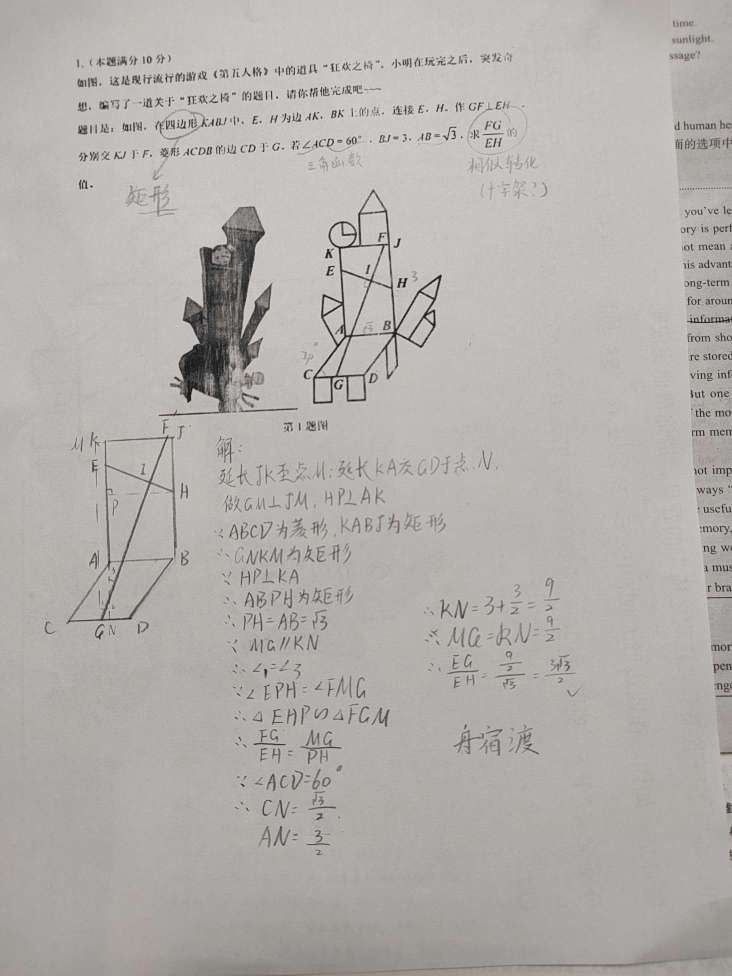 1.（本题满分 10 分）
如图，这是现行流行的游戏《第五人格》中的道具“狂欢之椅”，小明在玩完之后，突发奇
想，编写了一道关于“狂欢之椅”的题目，请你帮他完成吧~~~
题目是：如图，在四边形 KABJ 中，E，H 为边 AK，BK 上的点，连接 E，H，作 GF⊥EH，
分别交 KJ 于 F，菱形 ACDB 的边 CD 于 G，若∠ACD=60°，BJ=3，AB=√3，求 FG/EH 的
值。
矩形
三角函数
相似转化
(十字架?)
K F J
E I H 3
A √3 B
30°
C G D
第 1 题图
M K F J
E I H
P
A B
C G N D
解：
延长JK至点M；延长KA交GD于点N，
做GM⊥JM，HP⊥AK
∵ABCD为菱形，KABJ为矩形
∴GNKM为矩形
∵HP⊥KA
∴ABPH为矩形
∴PH=AB=√3
∵MG∥KN
∴∠1=∠3
∵∠EPH=∠FMG
∴△EHP∽△FGM
∴FG/EH=MG/PH
∵∠ACD=60°
∴CN=√3/2
AN=3/2
∴KN=3+3/2=9/2
∴MG=KN=9/2
∴FG/EH=9/2/√3=3√3/2
舟宿渡
time.
sunlight.
ssage?
d human he
面的选项中
you've le
ory is perf
not mean a
is advant
ong-term
for aroun
informa
from sho
re stored
ving inf
But one
the mo
rm mem
not imp
ways "
usefu
emory,
ng we
a mus
r bra